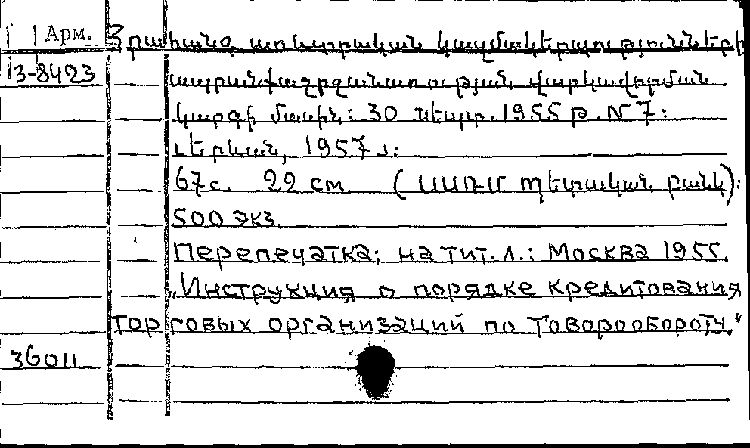 Арм. Հրահանգ առևտրական կազմակերպությունների
3-8423 ապրանքաշրջանառության վարկավորման
կարգի մասին: 30 սեպտ. 1955 թ. N 7:
Երևան, 1957 թ.:
67с. 22 см (ՍՍՌՄ Պետական բանկ):
500 экз.
Перепечатка; на тит.л.: Москва 1955.
"Инструкция о порядке кредитования
торговых организаций по товарообороту."
36011